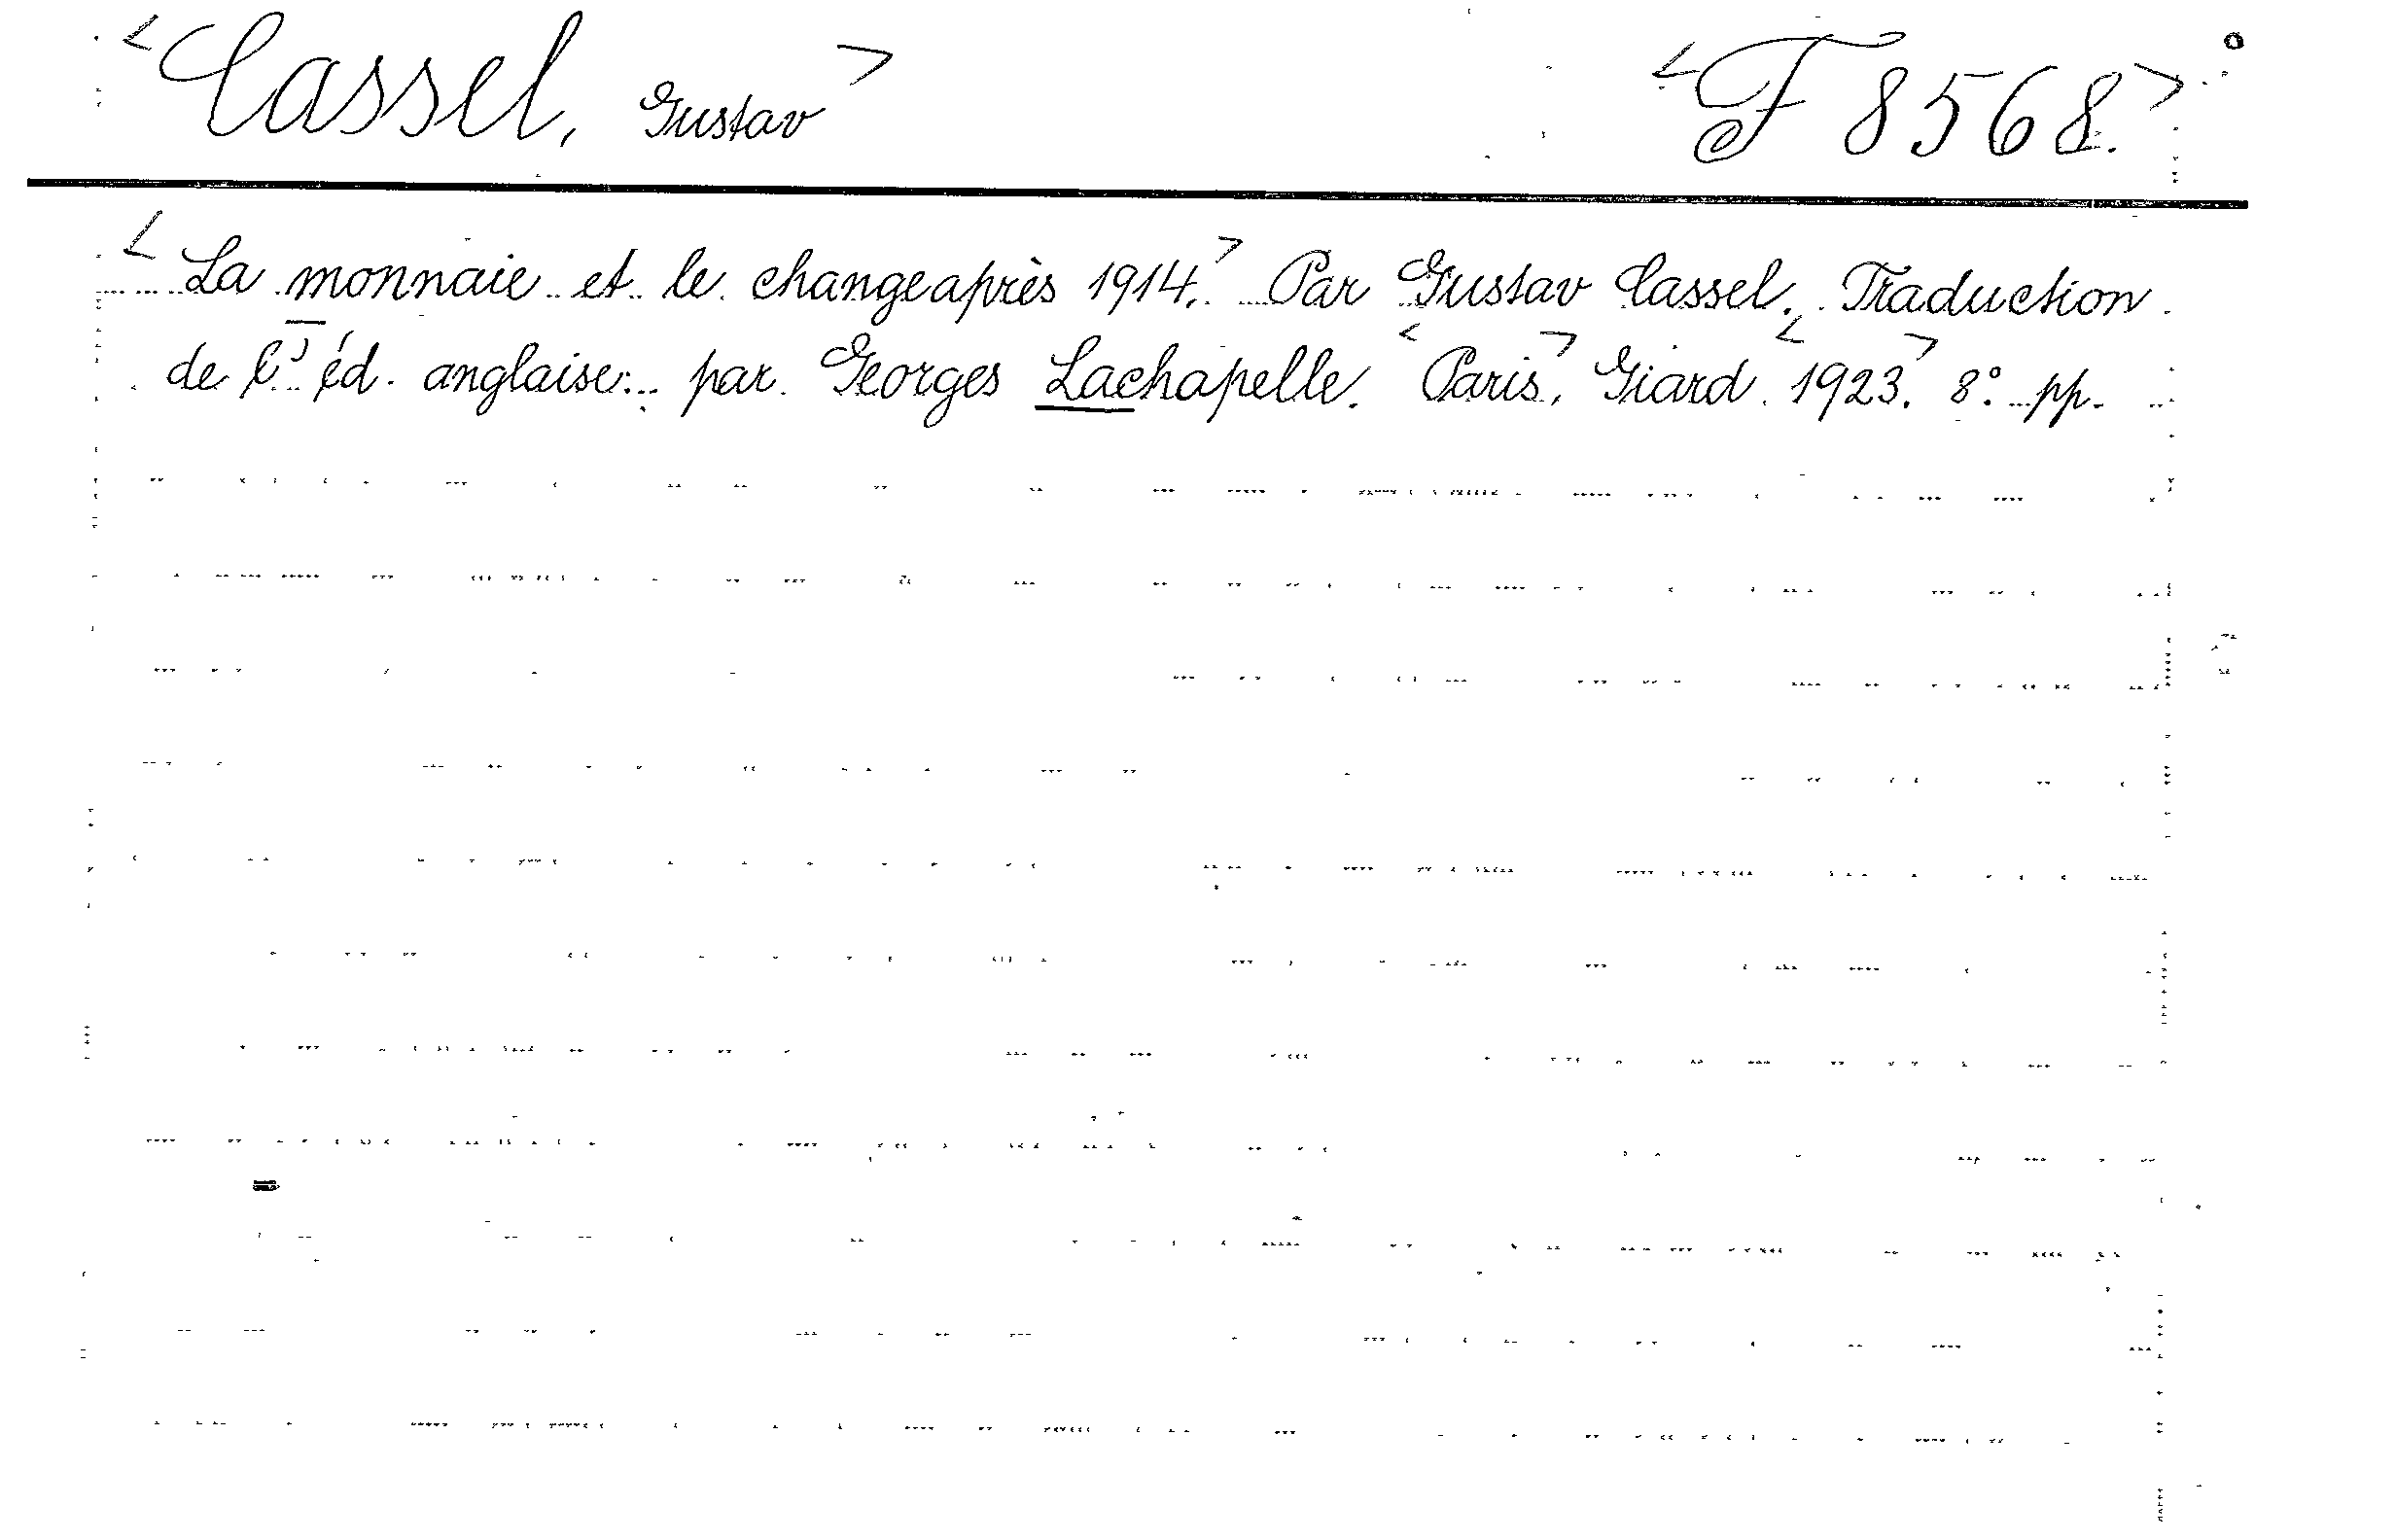 <Cassel, Gustav> <F 8568.>
<La monnaie et le change après 1914.> Par Gustav Cassel. Traduction
de l'éd. anglaise par Georges Lachapelle. <Paris>, Giard <1923>. 8° pp.